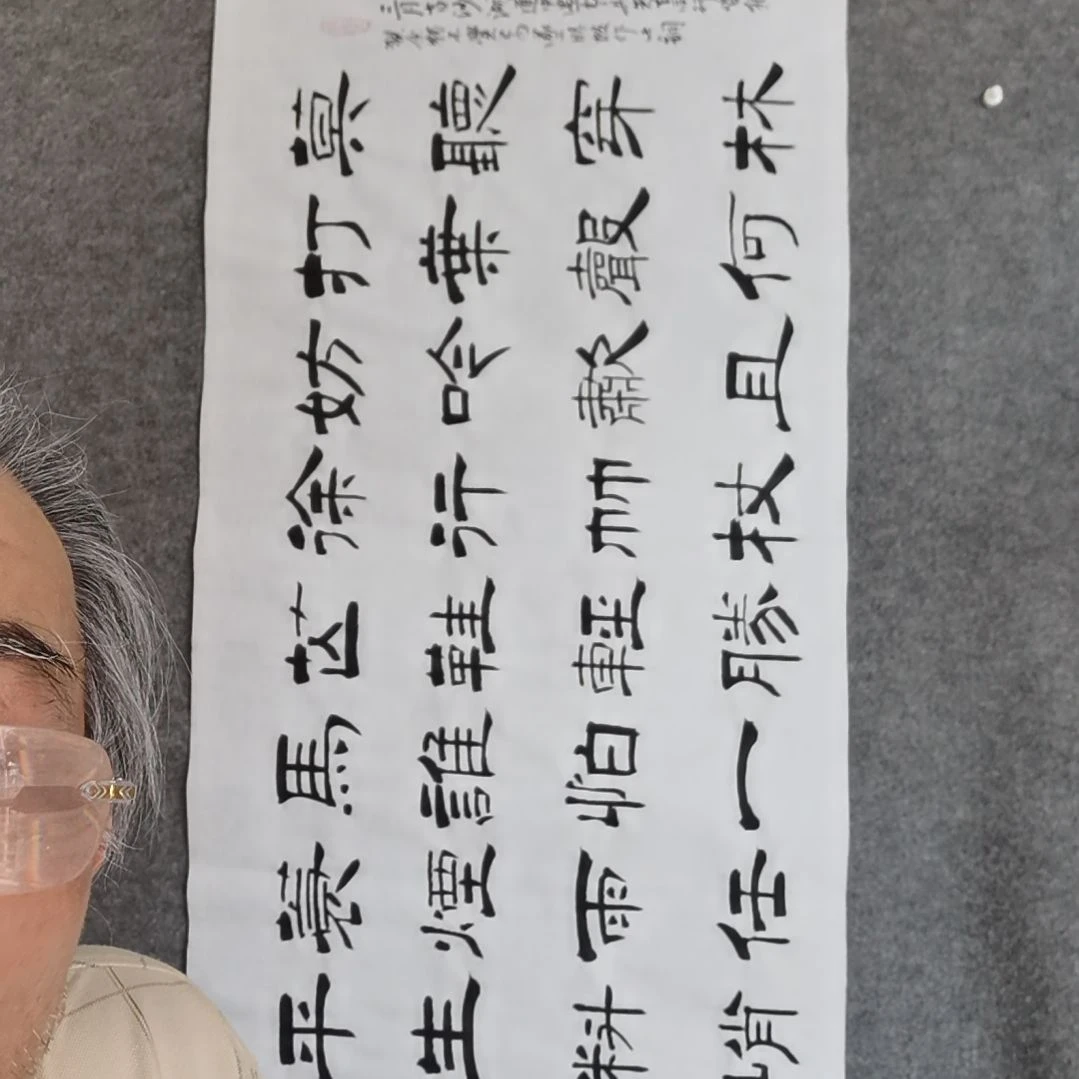 莫聽穿林
打葉聲何
妨吟歗且
徐行竹杖
芒鞋輕勝
馬誰怕一
蓑煙雨任
平生料峭